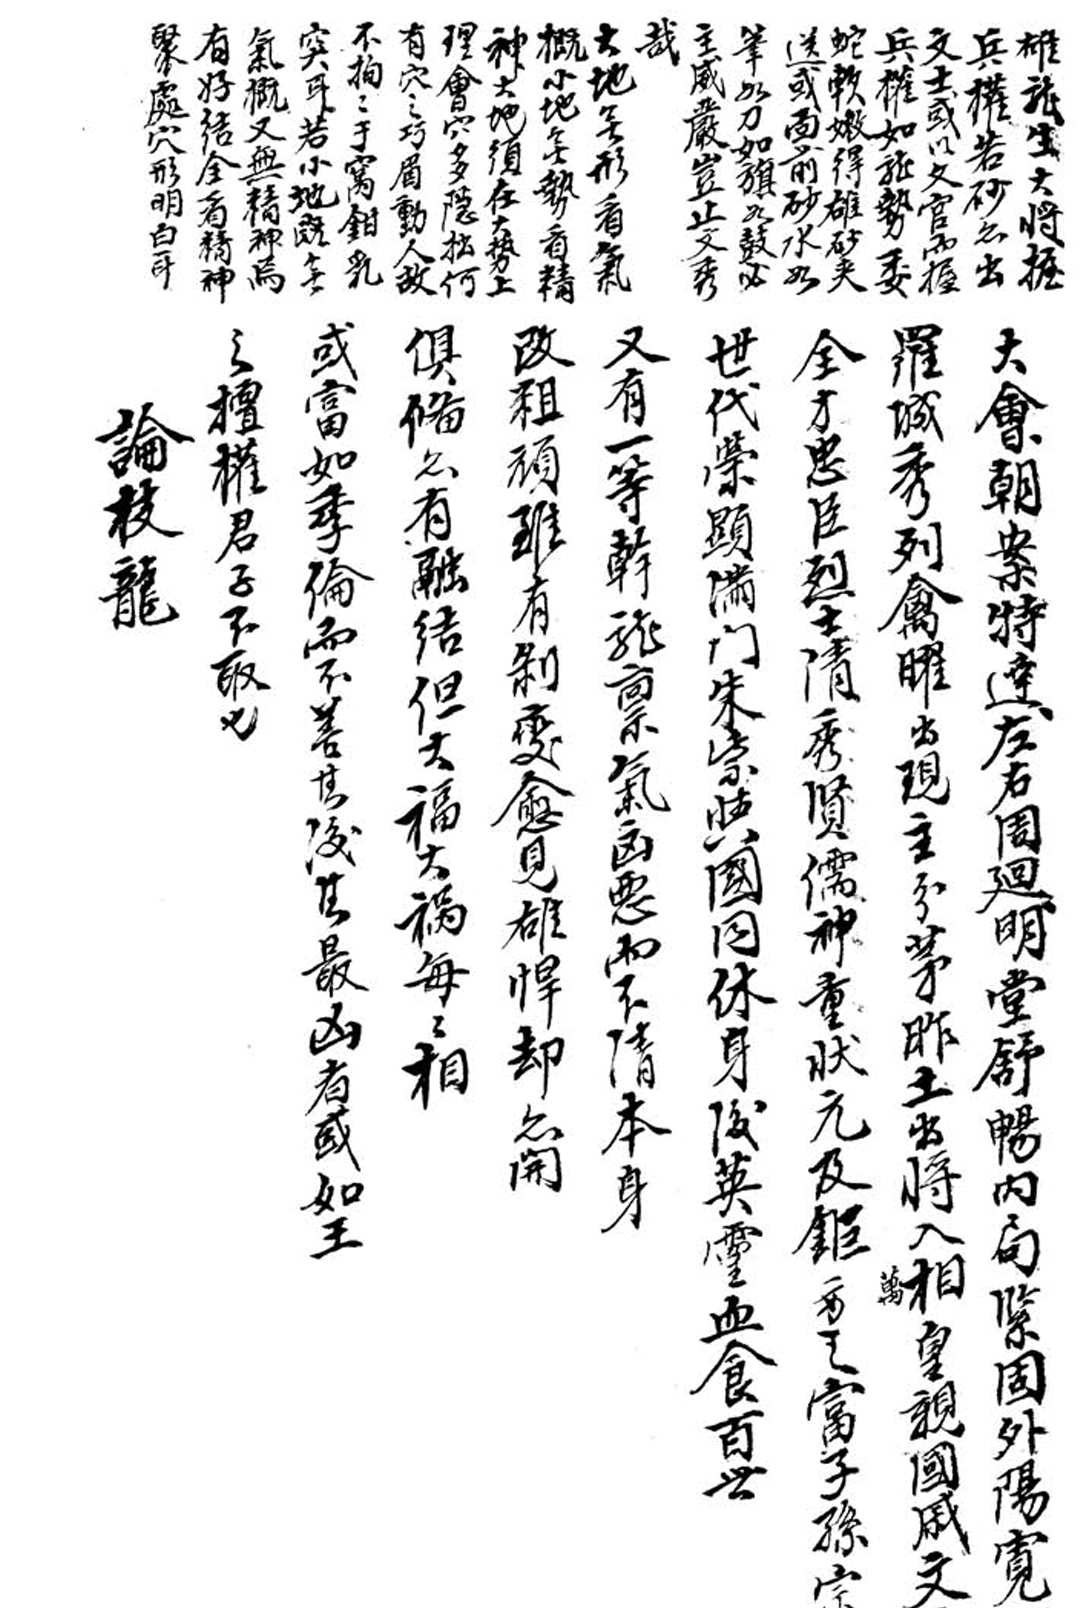 雄龍生大將握
兵權若砂亦出
文士或以文官而握
兵權如龍勢委
蛇軟嫩得雄砂夾
送或面前砂水如
筆如刀如旗如鼓必
主威嚴豈止文秀
哉
大地無形看氣
概小地無勢看精
神大地須在大勢上
理會穴多隱拙何
有穴之巧眉動人故
不拘々于窩鉗乳
突耳若小地既無
氣概又無精神焉
有好結全看精神
聚處穴形明白耳
大會朝案特達左右周迴明堂舒暢內局緊固外陽寬
羅城秀列禽曜出現主分茅胙土出將入相皇親國戚文
萬
全才忠臣烈士清秀賢儒神童狀元及鉅 富子孫宗
世代榮顯滿門朱紫與國同休身後英靈血食百世
又有一等幹龍稟氣凶惡而不清本身
改粗頑雖有剝變愈見雄悍却亦開
俱備亦有融結但大福大禍每々相
或富如季倫而不善其後其最凶者或如王
之擅權君子不取也
論枝龍